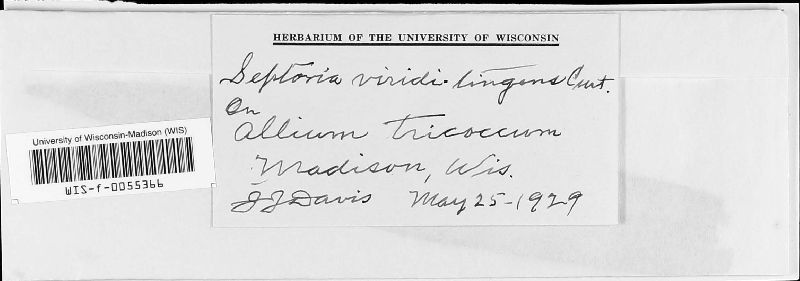 HERBARIUM OF THE UNIVERSITY OF WISCONSIN
Septoria viridi-tingens Curt.
On
Allium tricoccum
Madison, Wis.
JJDavis May 25-1929
University of Wisconsin-Madison (WIS)
WIS-f-0055366